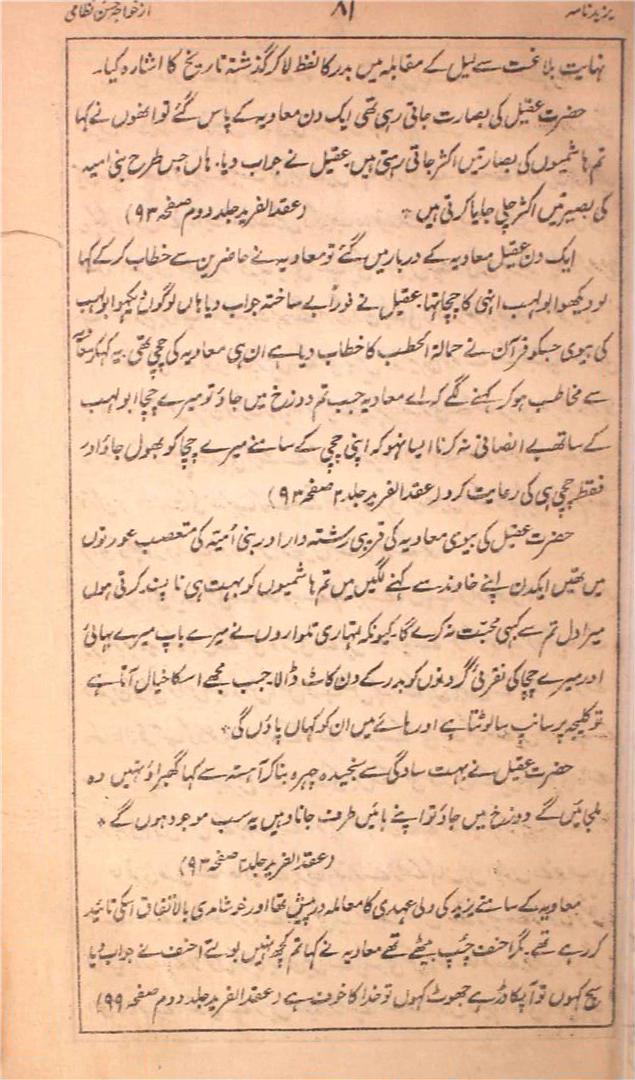 یزید نامہ ۸۱ از خواجہ حسن نظامی
نہایت بلاغت سے لیل کے مقابلہ میں بدر کا لفظ لا کر گذشتہ تاریخ کا اشارہ کیا۔
حضرت عقیل کی بصارت جاتی رہی تھی ایک دن معاویہ کے پاس گئے تو انھوں نے کہا
تم ہاشمیوں کی بصارتیں اکثر جاتی رہتی ہیں۔ عقیل نے جواب دیا۔ ہاں جس طرح بنی امیہ
کی بصیرتیں اکثر چلی جایا کرتی ہیں * (عقد الفرید جلد دوم صفحہ ۹۳)
ایک دن عقیل معاویہ کے دربار میں گئے تو معاویہ نے حاضرین سے خطاب کر کے کہا
لو دیکھو ابو لہب انہی کا چچا تھا۔ عقیل نے فوراً بے ساختہ جواب دیا ہاں لوگوں دیکھو ابو لہب
کی بیوی جسکو قرآن نے حمالۃ الحطب کا خطاب دیا ہے ان ہی معاویہ کی چچی تھی۔ یہ کہکر معاویہ
سے مخاطب ہو کر کہنے لگے کہ اے معاویہ جب تم دوزخ میں جاؤ تو میرے چچا ابو لہب
کے ساتھ بے انصافی نہ کرنا ایسا نہو کہ اپنی چچی کے سامنے میرے چچا کو بھول جاؤ اور
فقط چچی ہی کی رعایت کرو (عقد الفرید جلد ۲ صفحہ ۹۳)
حضرت عقیل کی بیوی معاویہ کی قریبی رشتہ دار اور بنی اُمیہ کی متعصب عورتوں
میں تھیں ایکدن اپنے خاوند سے کہنے لگیں میں تم ہاشمیوں کو بہت ہی نا پسند کرتی ہوں
میرا دل تم سے کبھی محبت نہ کرے گا۔ کیونکہ تمہاری تلواروں نے میرے باپ میرے بھائی
اور میرے چچا کی نقرئی گردنوں کو بدر کے دن کاٹ ڈالا۔ جب مجھے اسکا خیال آتا ہے
تو کلیجہ پر سانپ سا لوٹتا ہے اور ہائے میں ان کو کہاں پاؤں گی *
حضرت عقیل نے بہت سادگی سے سنجیدہ چہرہ بنا کر آہستہ سے کہا گھبراؤ نہیں وہ
ملجائیں گے دوزخ میں جاؤ تو اپنے بائیں طرف جانا وہیں یہ سب موجود ہوں گے *
(عقد الفرید جلد ۲ صفحہ ۹۳)
معاویہ کے سامنے یزید کی ولی عہدی کا معاملہ درپیش تھا اور خوشامدی بالاتفاق اسکی تائید
کر رہے تھے۔ مگر احنف چپ بیٹھے تھے معاویہ نے کہا تم کچھ نہیں بولتے احنف نے جواب دیا
سچ کہوں تو آپکا ڈر ہے جھوٹ کہوں تو خدا کا خوف ہے (عقد الفرید جلد دوم صفحہ ۹۹)